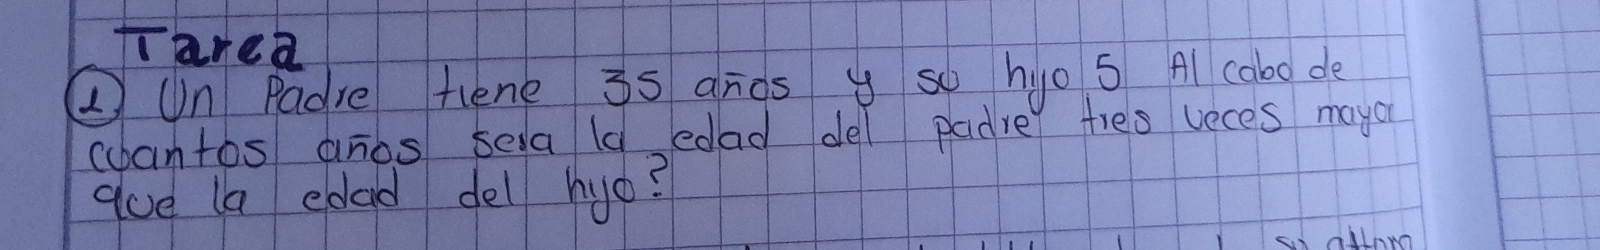 Tarea
① Un Padre tiene 35 años y su hijo 5 Al cabo de
cuantos años sera la edad del padre tres veces mayor
que la edad del hijo?